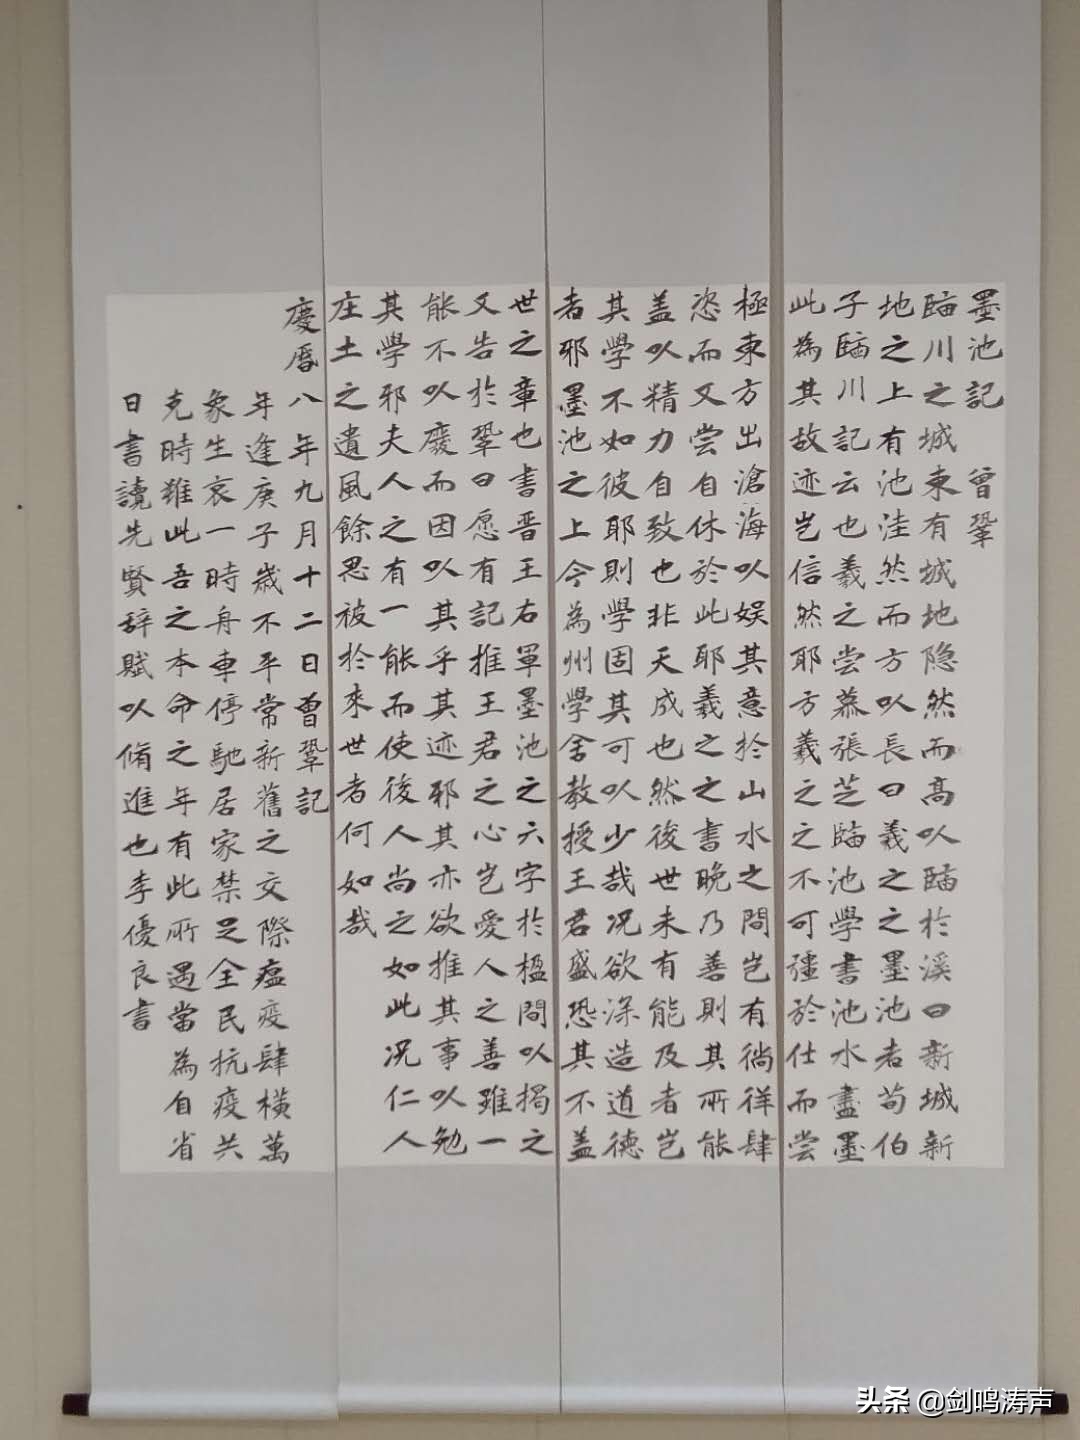 墨池記 曾鞏
臨川之城東有城地隐然而高以臨於溪曰新城新
地之上有池洼然而方以長曰羲之之墨池者荀伯
子臨川記云也羲之尝慕張芝臨池學書池水盡墨
此為其故迹岂信然耶方羲之之不可彊於仕而尝
極東方出滄海以娱其意於山水之間岂有徜徉肆
恣而又尝自休於此耶羲之之書晚乃善則其所能
盖以精力自致也非天成也然後世未有能及者岂
其學不如彼耶則學固其可以少哉况欲深造道德
者邪墨池之上今為州學舍教授王君盛恐其不盖
世之章也書晋王右軍墨池之六字於楹間以揭之
又告於鞏曰愿有記推王君之心岂愛人之善雖一
能不以廢而因以其乎其迹邪其亦欲推其事以勉
其學邪夫人之有一能而使後人尚之如此况仁人
庄土之遺風餘思被於來世者何如哉
慶曆八年九月十二日曾鞏記
年逢庚子歲不平常新舊之交際瘟疫肆橫萬
象生哀一時舟車停馳居家禁足全民抗疫共
克時難此吾之本命之年有此所遇當為自省
日書讀先賢辞賦以脩進也李優良書
头条 @剑鸣涛声